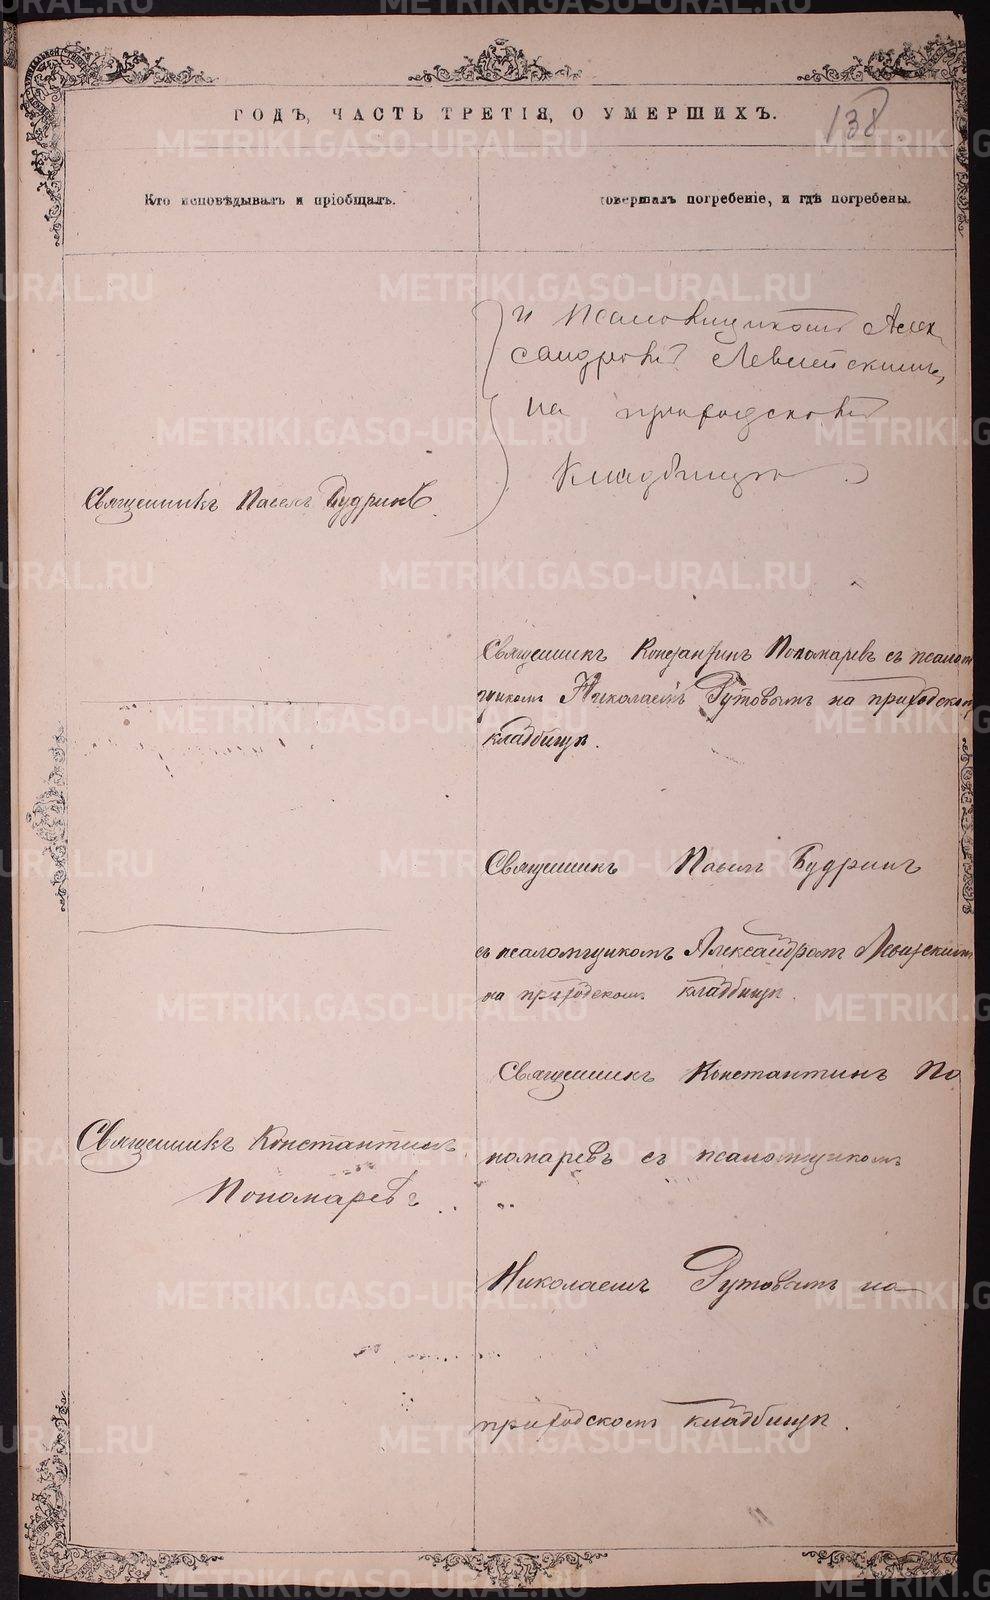 ГОДЪ, ЧАСТЬ ТРЕТІЯ, О УМЕРШИХЪ.
138
Кто исповѣдывалъ и пріобщалъ.
совершалъ погребеніе, и гдѣ погребены.
и псаломщикомъ Алек
сандромъ Левитскимъ,
на приходскомъ
кладбищѣ
Священникъ Павелъ Будринъ.
Священникъ Константинъ Пономаревъ съ псалом
щикомъ Николаемъ Гутовымъ на приходском
кладбищѣ.
Священникъ Павелъ Будринъ
съ псаломщикомъ Александромъ Левитскимъ
на приходскомъ кладбищѣ.
Священникъ Константинъ По
номаревъ съ псаломщикомъ
Священникъ Константинъ
Пономаревъ.
Николаемъ Гутовымъ на
приходскомъ кладбищѣ.
METRIKI.GASO-URAL.RU